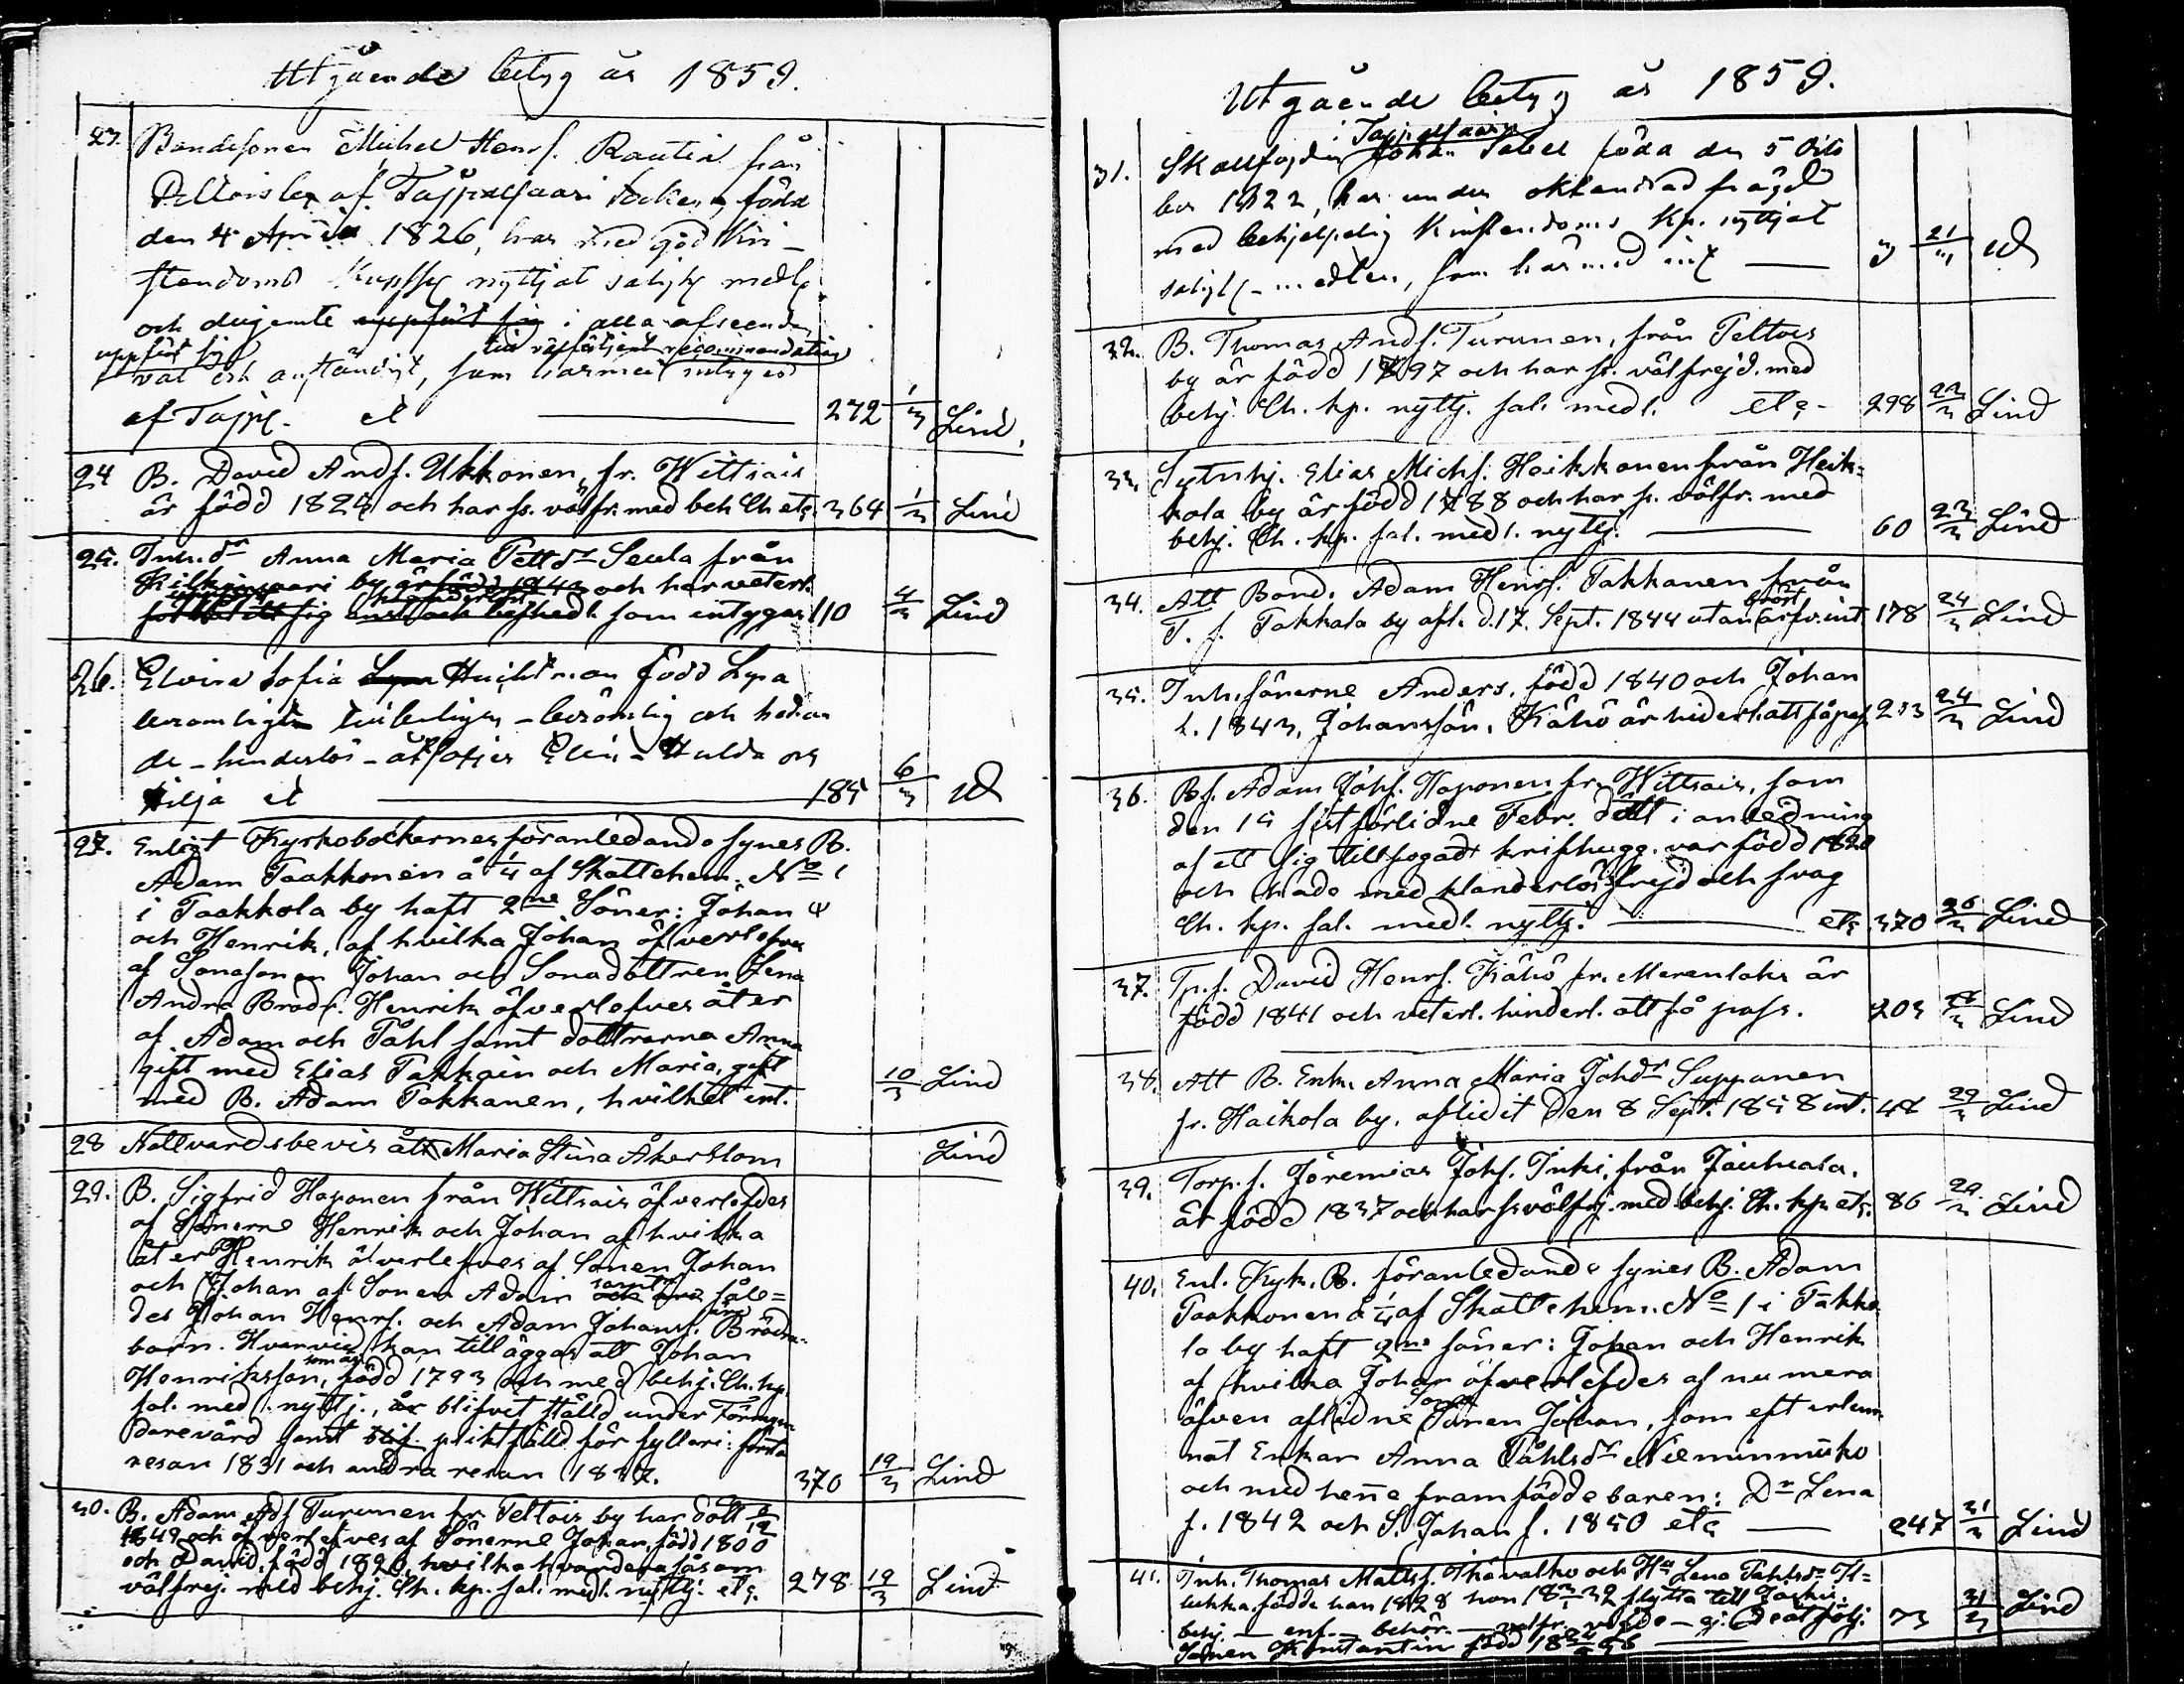 Utgående betyg år 1859.
23. Bondesonen Michel Henrs. Rautia från
Peltois by af Taipalsaari Socken, född
den 4 April 1826, har med god Kri-
stendoms Kunskp nyttjat salighs medle
och dugemte uppfört sig i alla afseenden
uppfört sig till välförtjent recommendation
väl och anständigt, som härmed intygas
af Taipl. et 272 1/3 Lind.
24 B. David Ands. Ukkonen, fr. Wittsais
är född 1824 och har fr. välfr. med beh Ch etc. 364 1/3 Lind
25. Inh. dr Anna Maria Pettdr Seula från
Kilkinsaari by är född 1843 och har veterl.
sig och beskedl. som intygas 110 4/3 Lind
26. Elvira Sofia Lyra född Lyra
beromlig och hedran
de - hinderlös - åtföljes Elin - Hulda och
Hilja et 185 6/3 Ud
27. Enligt Kyrkobockernes föranledande synes B.
Adam Taakkonen å 1/4 af Skattehem. No 1
i Taakkola by haft 2ne Söner: Johan
och Henrik, af hvilka Johan öfverlefves
af Sonasonen Johan och Sonadottren Lena
Andra Brodr. Henrik öfverlefves åter
af Adam och Påhl samt dottrarna Anna
gift med Elias Takkain och Maria, gift
med B. Adam Takkanen, hvilket int. 10/3 Lind
28 Nattvardsbevis åt Maria Stina Åkerblom Lind
29. B. Sigfrid Haponen från Wittsais öfverlefdes
af Sönerne Henrik och Johan af hvilka
åter Henrik öfverlefves af Sonen Johan
och Johan af Sonen Adam samt såle=
des Johan Henrs. och Adam Johans. äro Bröra-
barn. Hvarvid kan tilläggas att Johan
Henriksson, som är född 1793 och med behj. Ch. kp.
sal. medl. nyttj., är blifvit ställd under Förmyn
darevård samt blif. pliktfälld för fylleri: första
resan 1831 och andra resan 1837. 370 19/3 Lind
30. B. Adam Ads Turunen fr. Peltois by har dött 6/12
1849 och öfverlefves af Sönerne Johan, född 1800
och David, född 1820, hvilka hvardera såsom
välfrej. med behj. Ch. kp. sal. medl. nyttj. etc. 278 19/3 Lind
Utgående betyg år 1859.
i Taipalsaari
31. Skallfogden Johan Sabel föda den 5 Octo
ber 1822, har under oklandrad frägd
med behjelpelig Kristendoms Kp. nyttjat
saligh-medlen, som härmed int 3 21/3 Ud
32. B. Thomas Ands. Turunen, från Peltois
by är född 1797 och har fr. välfrejd. med
behj. Ch. kp. nyttj. sal. medl. etc. 298 22/3 Lind
33. Sytnhj. Elias Michs. Heikkonen från Heik=
kola by är född 1788 och har fr. välfr. med
behj. Ch. kp. sal. medl. nyttj. 60 23/3 Lind
34. Att Bond. Adam Henrs. Takkanen från
T. s. Takkala by afl. d. 17. Sept. 1844 utan bröstarfv. int 178 24/3 Lind
35. Inh. sönerne Anders, född 1840 och Johan
f. 1843, Johanssön. Kähö är hinderl. att få pass 233 24/3 Lind
36. Bs. Adam Johs. Haponen fr. Wittsais, som
den 15 sistförlidne Febr. dött i anledning
af ett sig tillfogadt knifhugg. var född 1820
och hade med klanderlös frejd och svag
Ch. kp. sal. medl. nyttj. etc. 370 26/3 Lind
37. Tp.s. David Henrs. Kähö fr. Merenlaks är
född 1841 och veterl. hinderl. att få pass. 203 28/3 Lind
38. Att B. Enk. Anna Maria Johdr Suppanen
fr. Haikola by, aflidit den 8 Sept. 1858 int. 48 29/3 Lind
39. Torp.s. Jeremias Johs. Inki, från Jauhiala.
är född 1837 och har fr. välfrj. med behj. Ch. kp. etc. 86 29/3 Lind
40. Enl. Kyk. B. föranledande synes B. Adam
Taakkonen å 1/4 af Skattehem. No 1 i Takko
la by haft 2ne söner: Johan och Henrik
af hvilka Johan öfverlefdes af numera
äfven aflidne Sonen Johan, som efterlem
nat Enkan Anna Påhlsdr Nieminmiiko
och med henne framfödde baren: Dr Lena
f. 1842 och S. Johan f. 1850 etc 247 31/3 Lind
41. Inh. Thomas Matts. Ihävalko och Hu Lena Pahlsdr Il=
lukka födde han 1828 hon 18 32 flytta till
behj. — enf. — behör. — välfr. — gj. De åtfölj.
Sonen Konstantin född 18 56 73 31/3 Lind